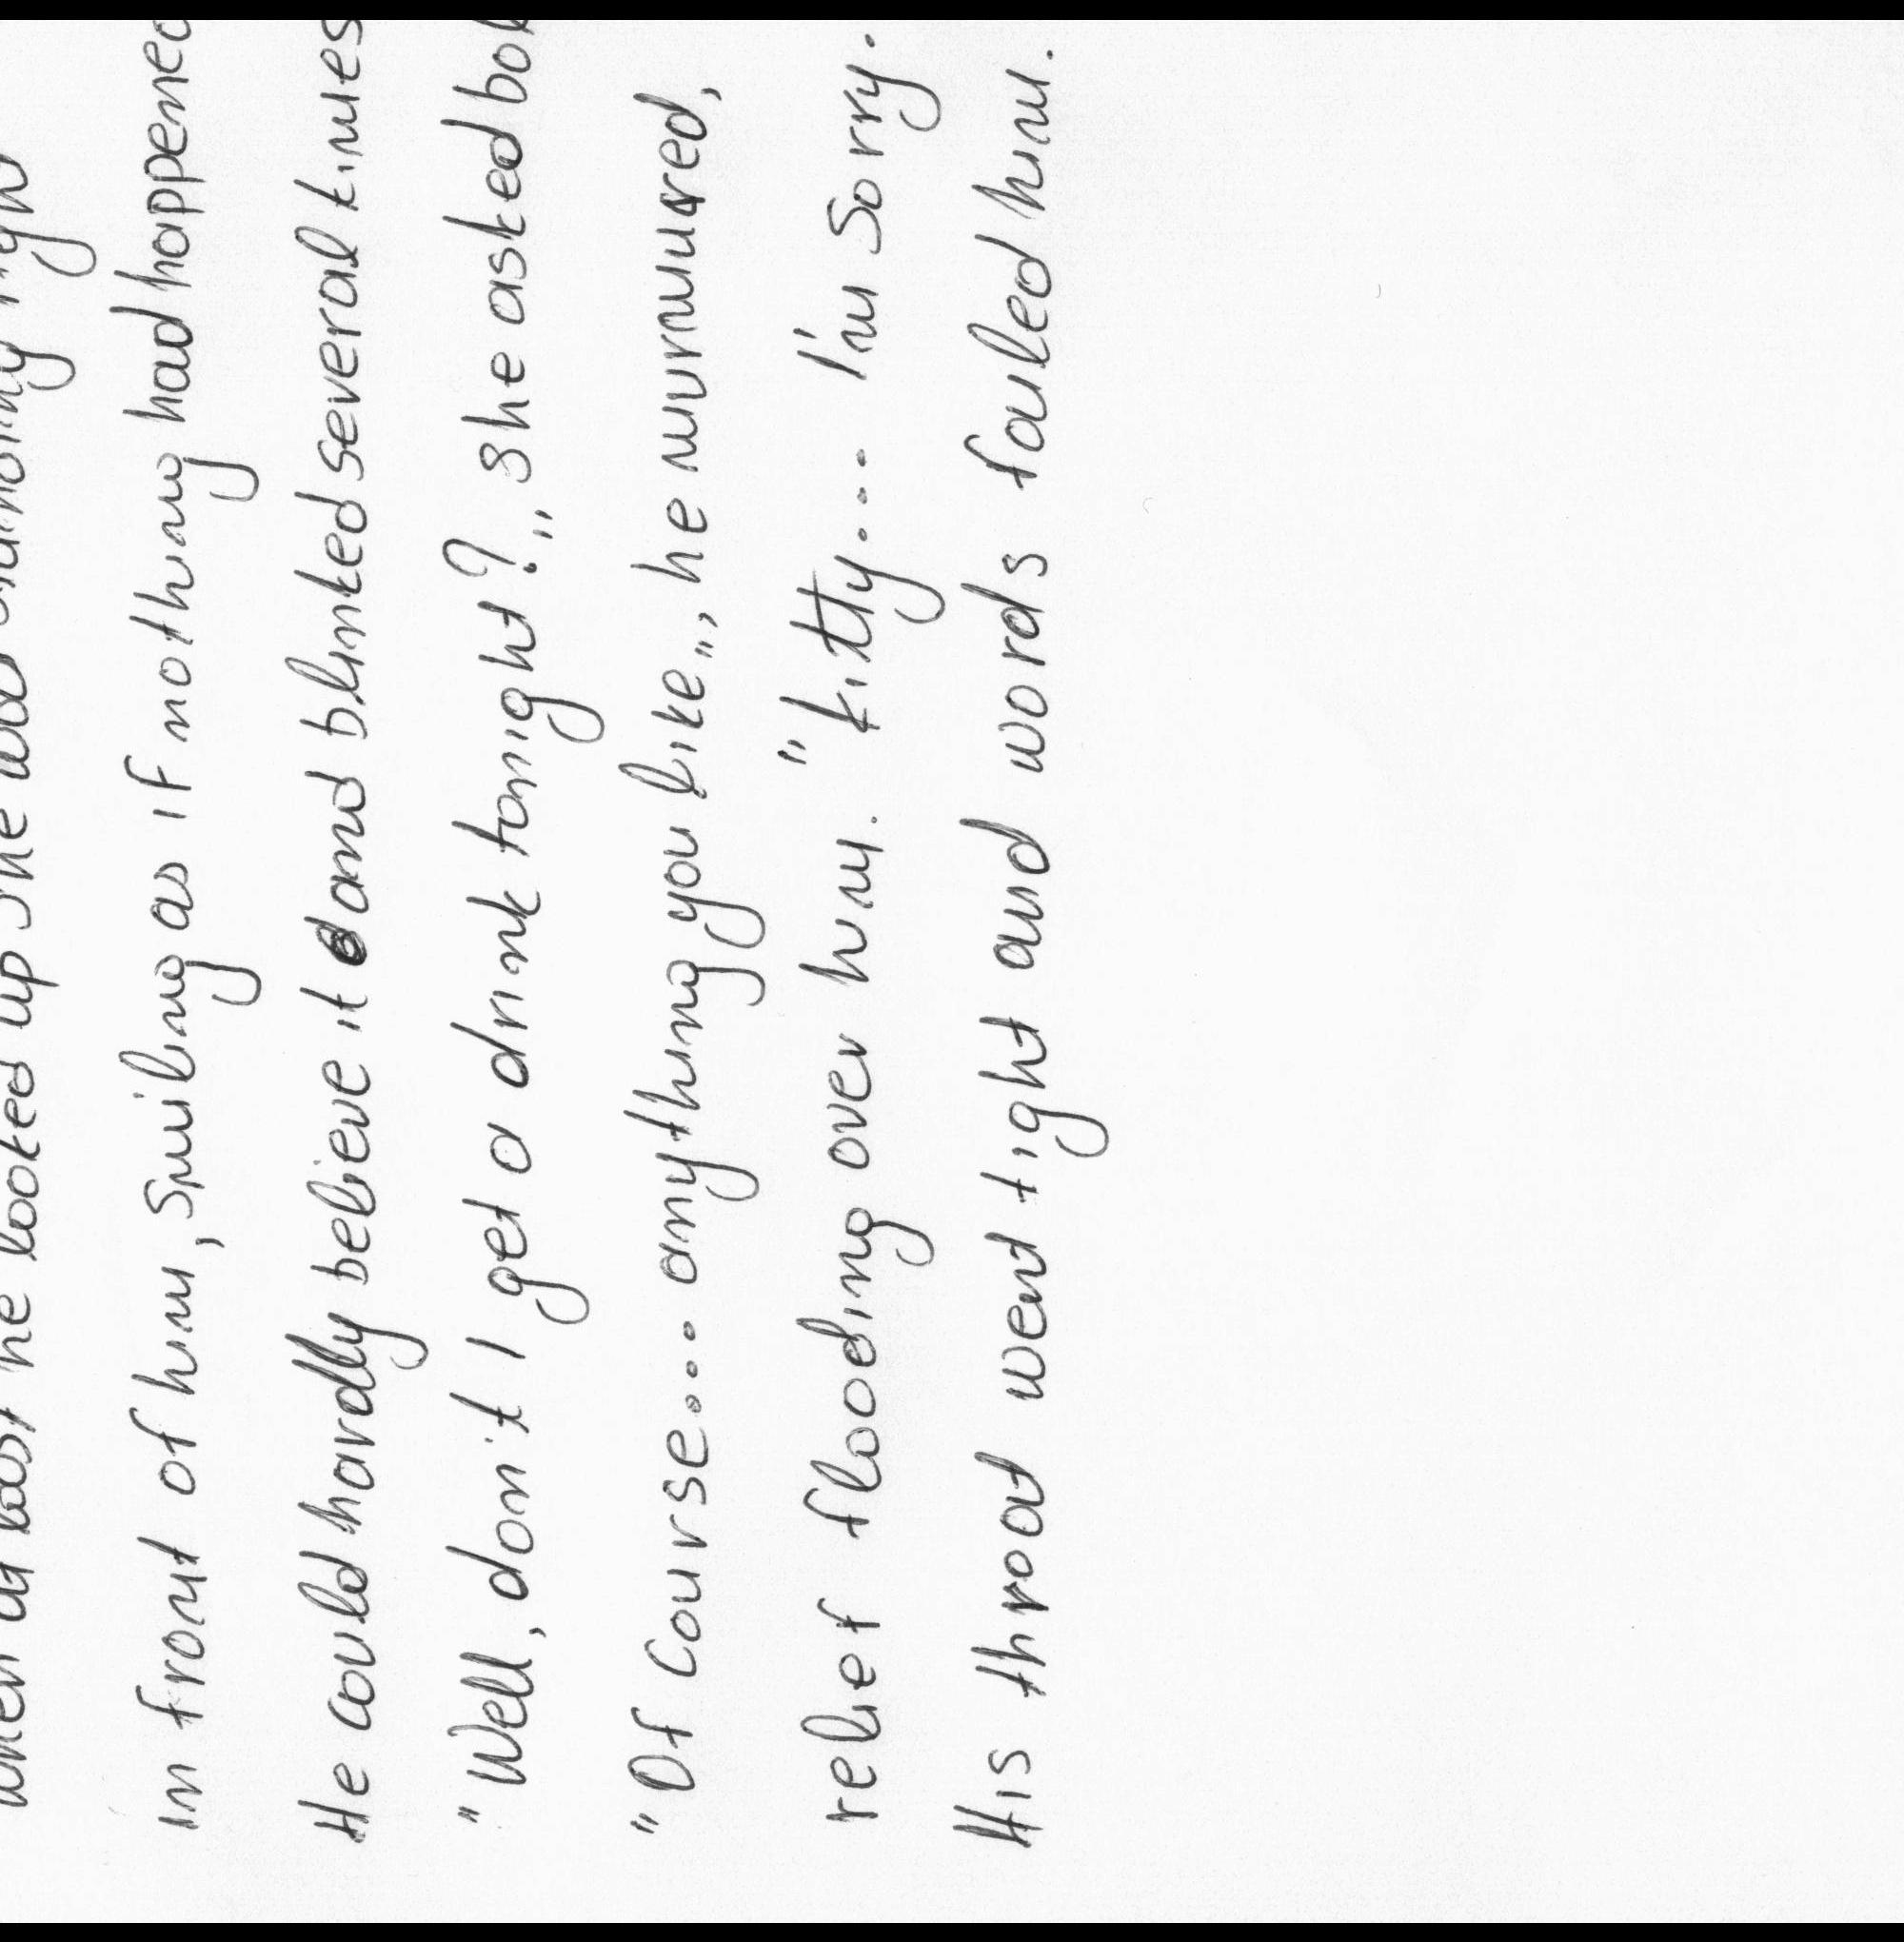 when at last he looked up she was standing right
in front of him, smiling as if nothing had happened
He could hardly believe it and blinked several times
"Well, don't I get a drink tonight?", she asked
"Of course... anything you like", he murmured,
relief flooding over him. "Kitty... I'm sorry.
His throat went tight and words failed him.